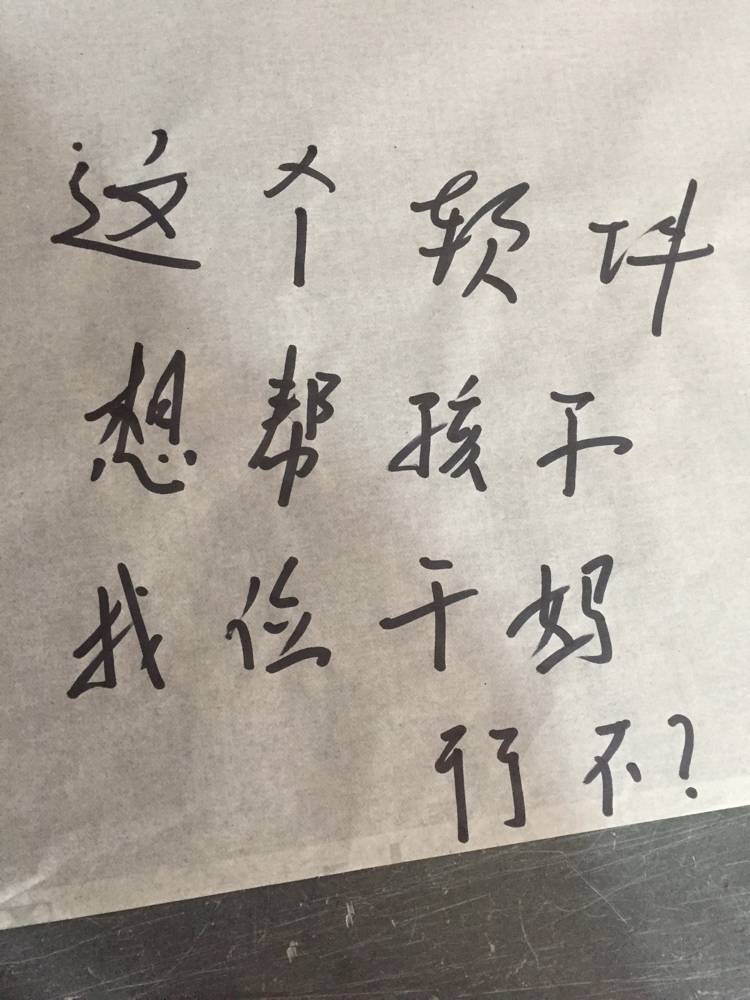 这个软件
想帮孩子
找俭干妈
行不?